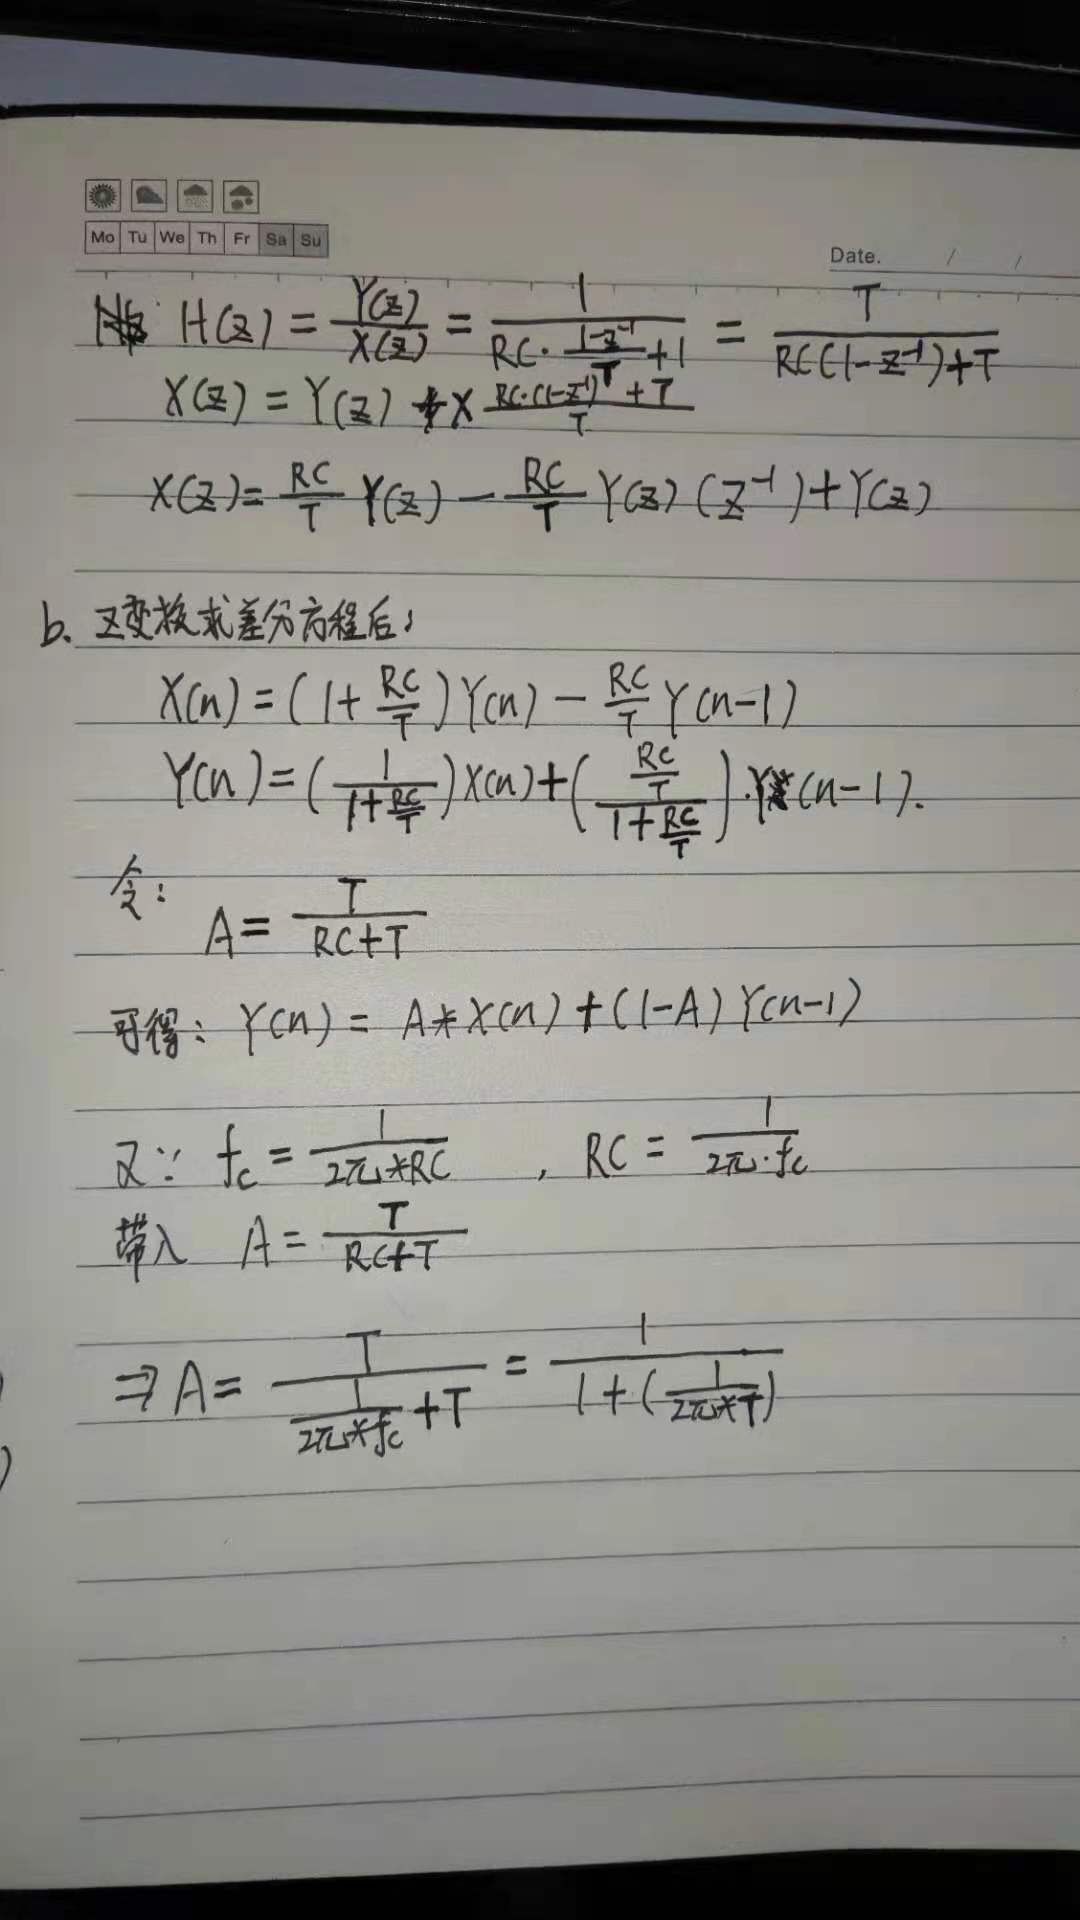 Mo Tu We Th Fr Sa Su
Date. / /
H(z) = Y(z)/X(z) = 1/(RC·(1-z⁻¹)/T + 1) = T/(RC(1-z⁻¹)+T)
X(z) = Y(z) × (RC·(1-z⁻¹)+T)/T
X(z) = RC/T Y(z) - RC/T Y(z)(z⁻¹) + Y(z)
b. Z变换求差分方程后:
X(n) = (1+RC/T)Y(n) - RC/T Y(n-1)
Y(n) = (1/(1+RC/T))X(n) + ((RC/T)/(1+RC/T))·Y(n-1).
令:
A = T/(RC+T)
可得: Y(n) = A*X(n) + (1-A)Y(n-1)
又∵ fc = 1/(2π*RC) , RC = 1/(2π·fc)
带入 A = T/(RC+T)
⇒ A = T/(1/(2π*fc)+T) = 1/(1+(1/(2π*T)))